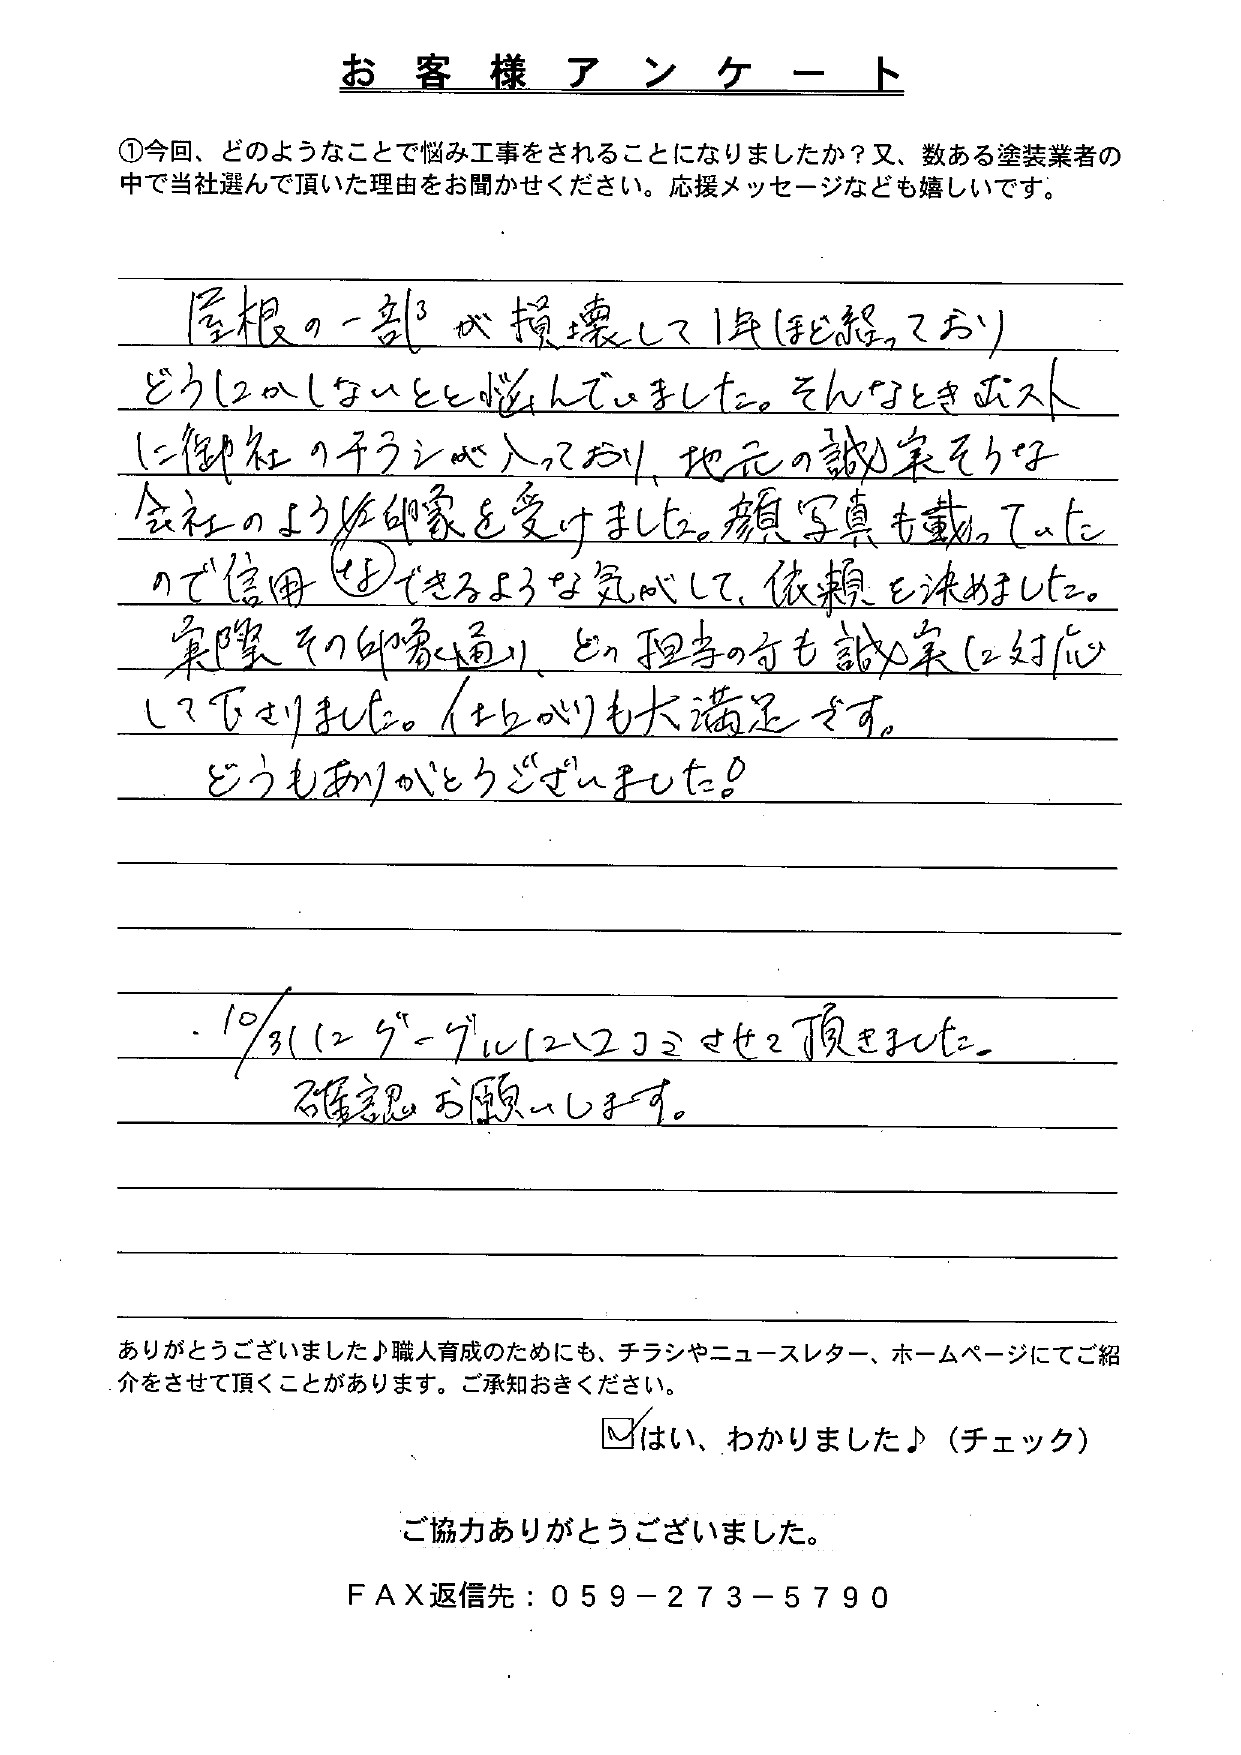 お客様アンケート
①今回、どのようなことで悩み工事をされることになりましたか？又、数ある塗装業者の
中で当社選んで頂いた理由をお聞かせください。応援メッセージなども嬉しいです。
屋根の一部が損壊して1年ほど経っており
どうにかしないとと悩んでいました。そんなときポスト
に御社のチラシが入っており、地元の誠実そうな
会社のような印象を受けました。顔写真も載っていた
ので信用できるような気がして、依頼を決めました。
実際その印象通り、どの担当の方も誠実に対応
して下さりました。仕上がりも大満足です。
どうもありがとうございました！
・10/31にグーグルに口コミさせて頂きました。
確認お願いします。
ありがとうございました♪職人育成のためにも、チラシやニュースレター、ホームページにてご紹
介をさせて頂くことがあります。ご承知おきください。
☑はい、わかりました♪（チェック）
ご協力ありがとうございました。
ＦＡＸ返信先：０５９－２７３－５７９０